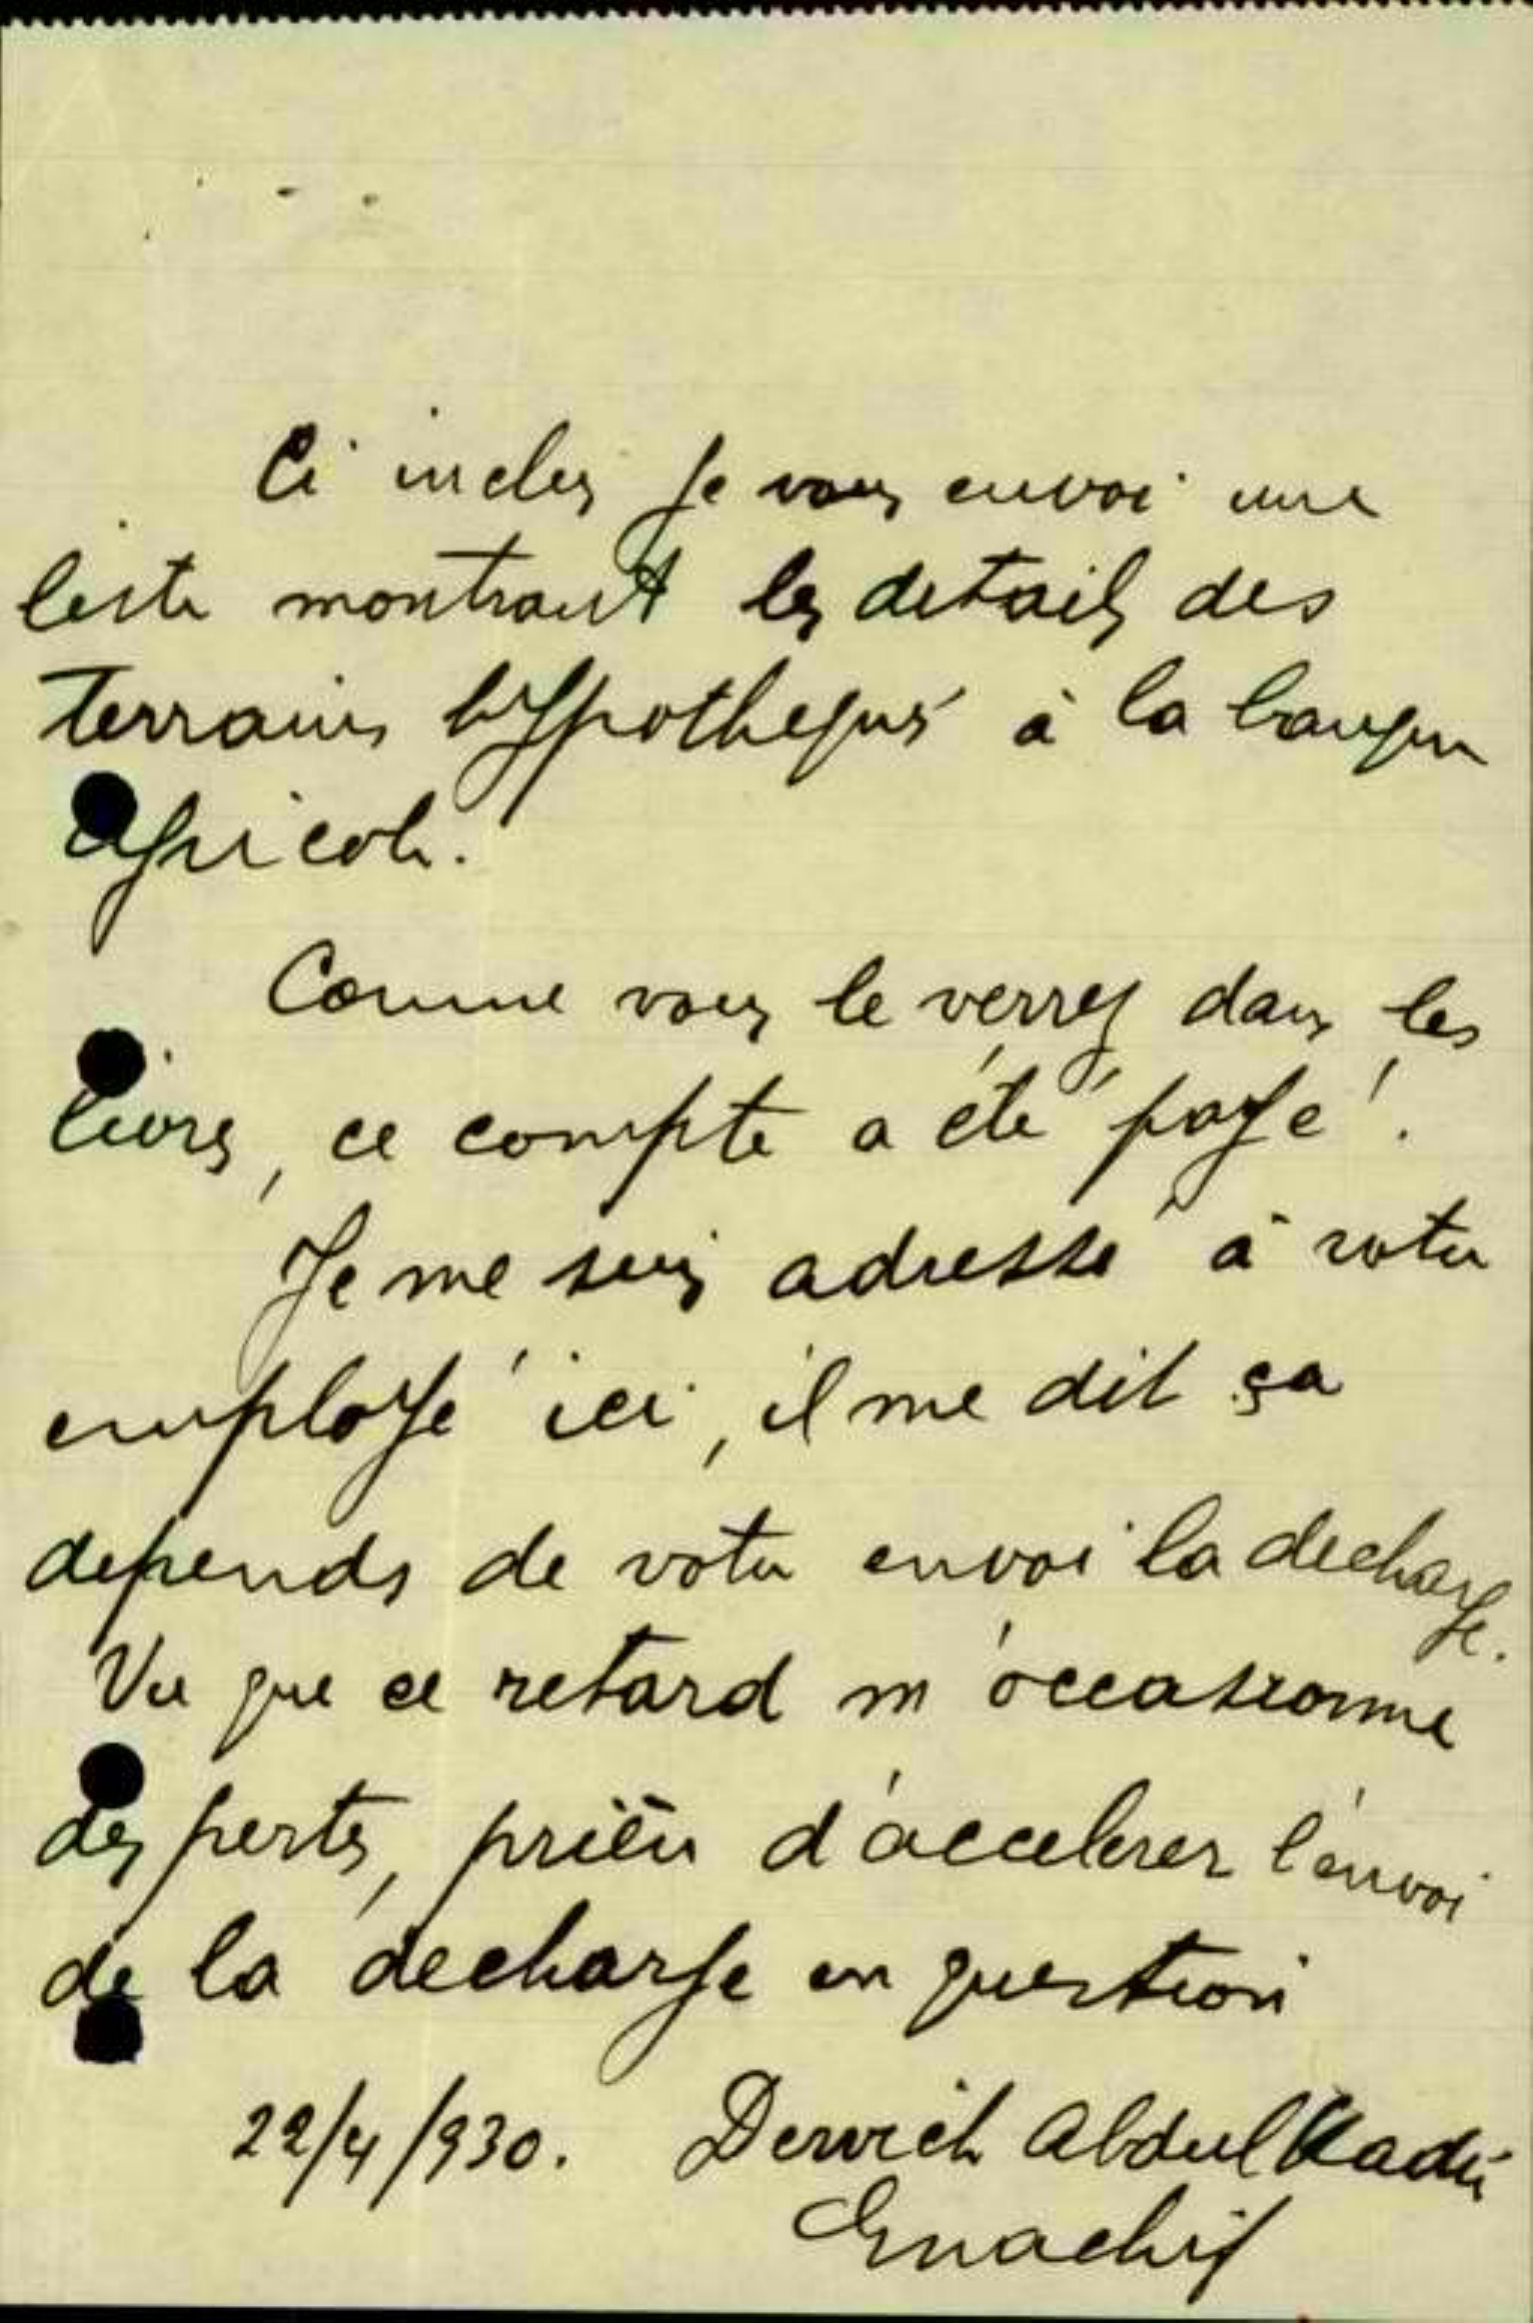 Ci inclus je vous envoi une
liste montrant les details des
terrains hypothequé à la banque
agricole.
Comme vous le verrez dans les
livres, ce compte a été payé.
Je me suis adressé à votre
employé ici, il me dit ça
depends de votre envoi la decharge.
Vu que ce retard m'occasionne
des pertes, prière d'accelerer l'envoi
de la décharge en question
22/4/930. Dervich Abdul Kader
Enachif